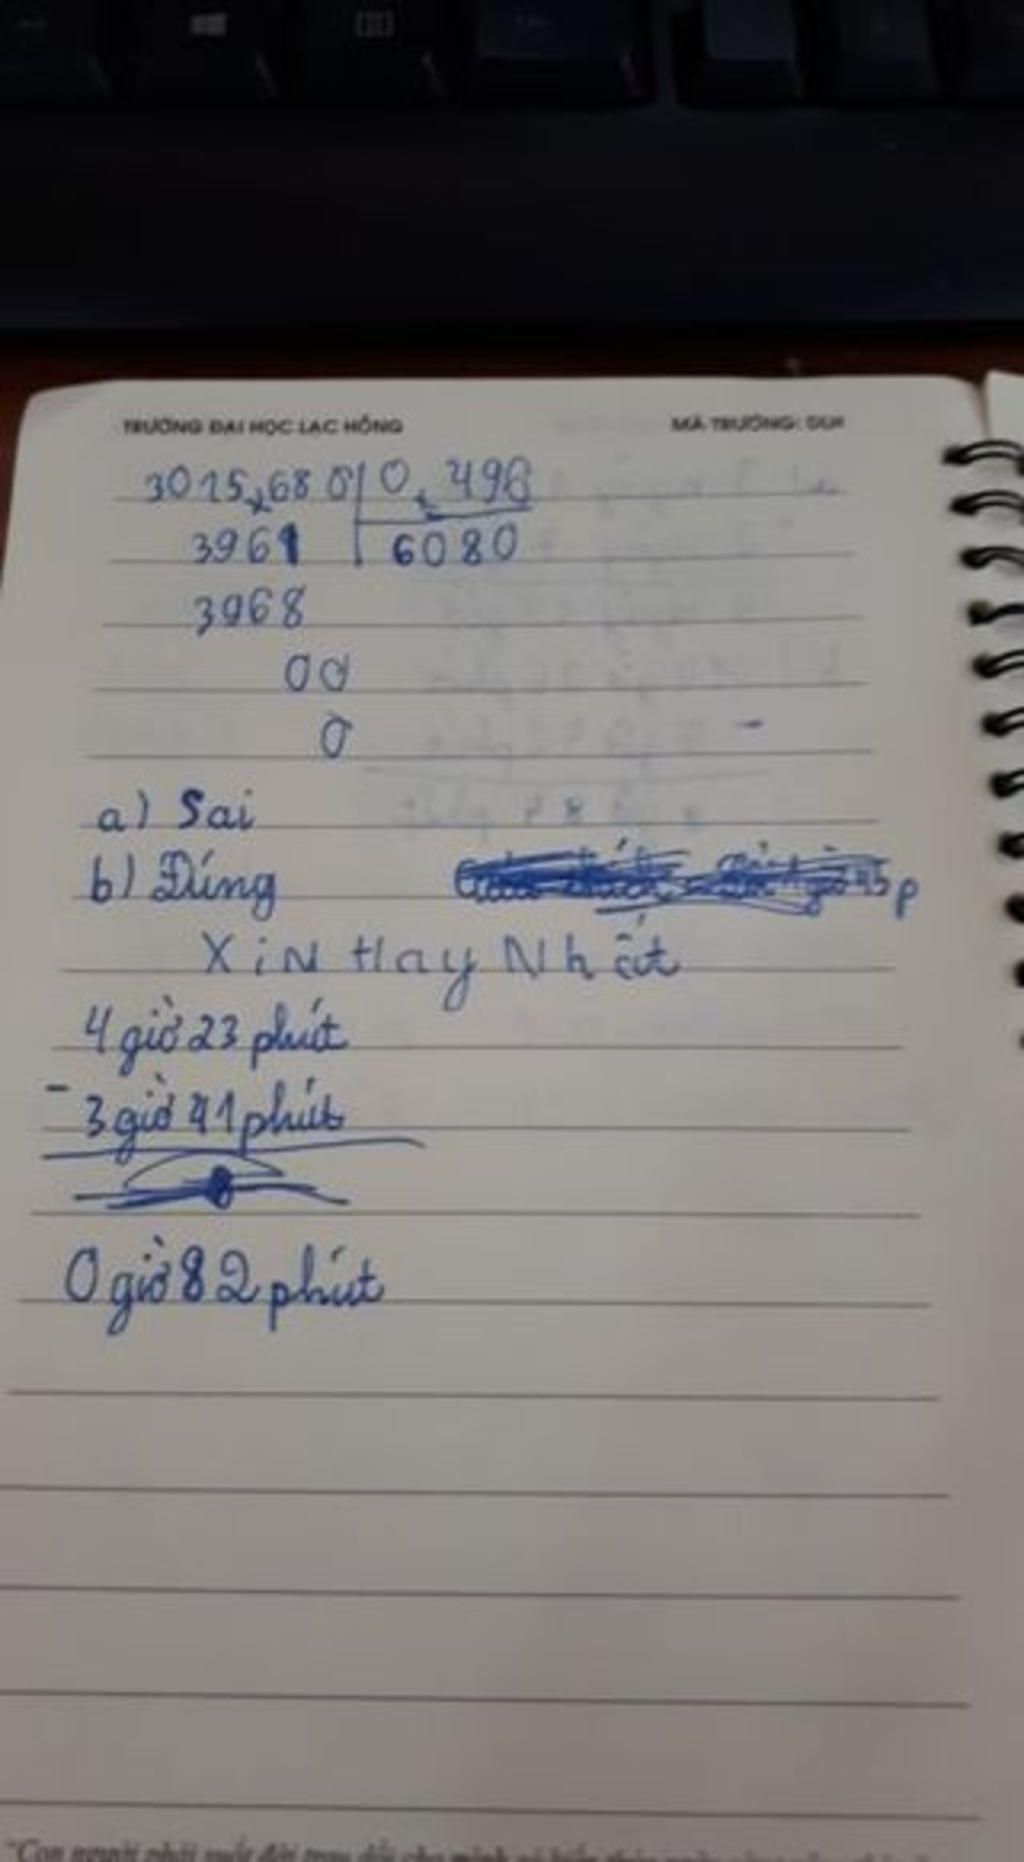 TRƯỜNG ĐẠI HỌC LẠC HỒNG MÃ TRƯỜNG: DLH
3015,680 0,496
3961 6080
3968
00
0
a) Sai
b) Đúng 45 p
Xin Hay Nhất
4 giờ 23 phút
- 3 giờ 41 phút
0 giờ 82 phút
"Con người phải suốt đời trau dồi cho mình